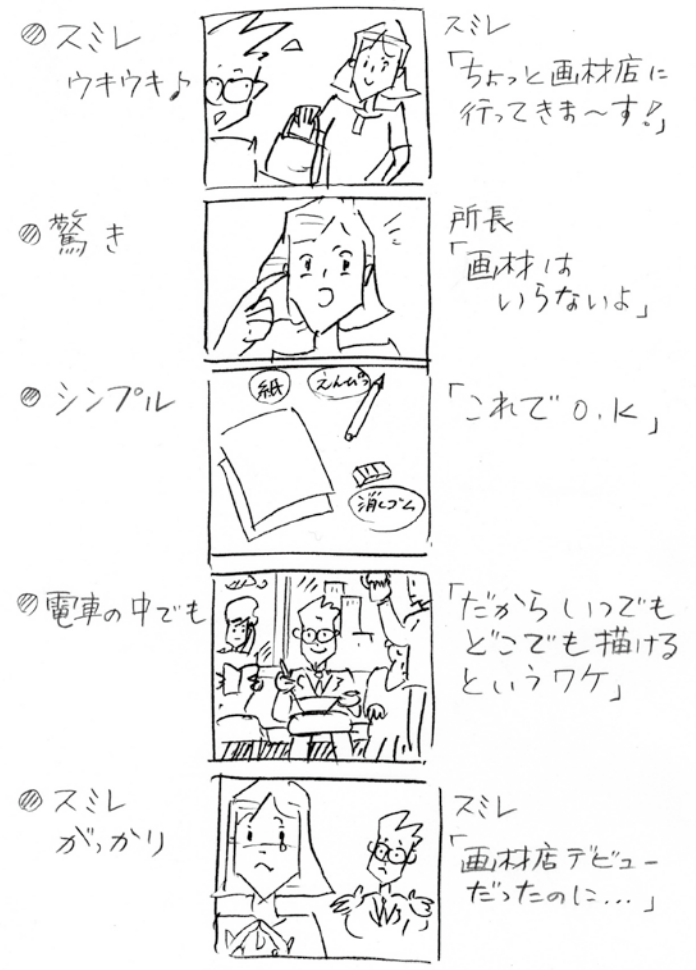 スミレ
ウキウキ♪
スミレ
「ちょっと画材店に
行ってきま〜す!」
驚き
所長
「画材は
いらないよ」
シンプル
紙
えんぴつ
消しゴム
「これでO.K」
電車の中でも
「だからいつでも
どこでも描ける
というワケ」
スミレ
がっかり
スミレ
「画材店デビュー
だったのに...」